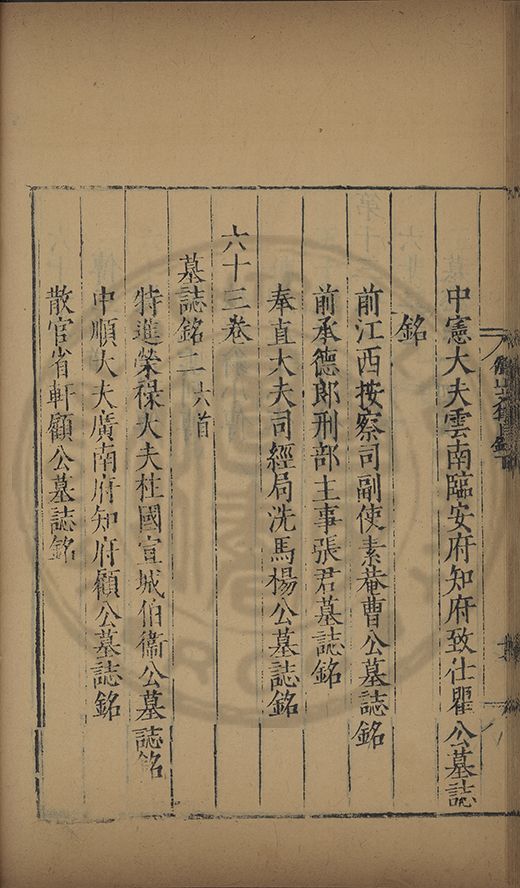 中憲大夫雲南臨安府知府致仕瞿公墓誌
銘
前江西按察司副使素菴曹公墓誌銘
前承德郎刑部主事張君墓誌銘
奉直大夫司經局洗馬楊公墓誌銘
六十三卷
墓誌銘二 六首
特進榮祿大夫柱國宣城伯衞公墓誌銘
中順大夫廣南府知府顧公墓誌銘
散官省軒顧公墓誌銘